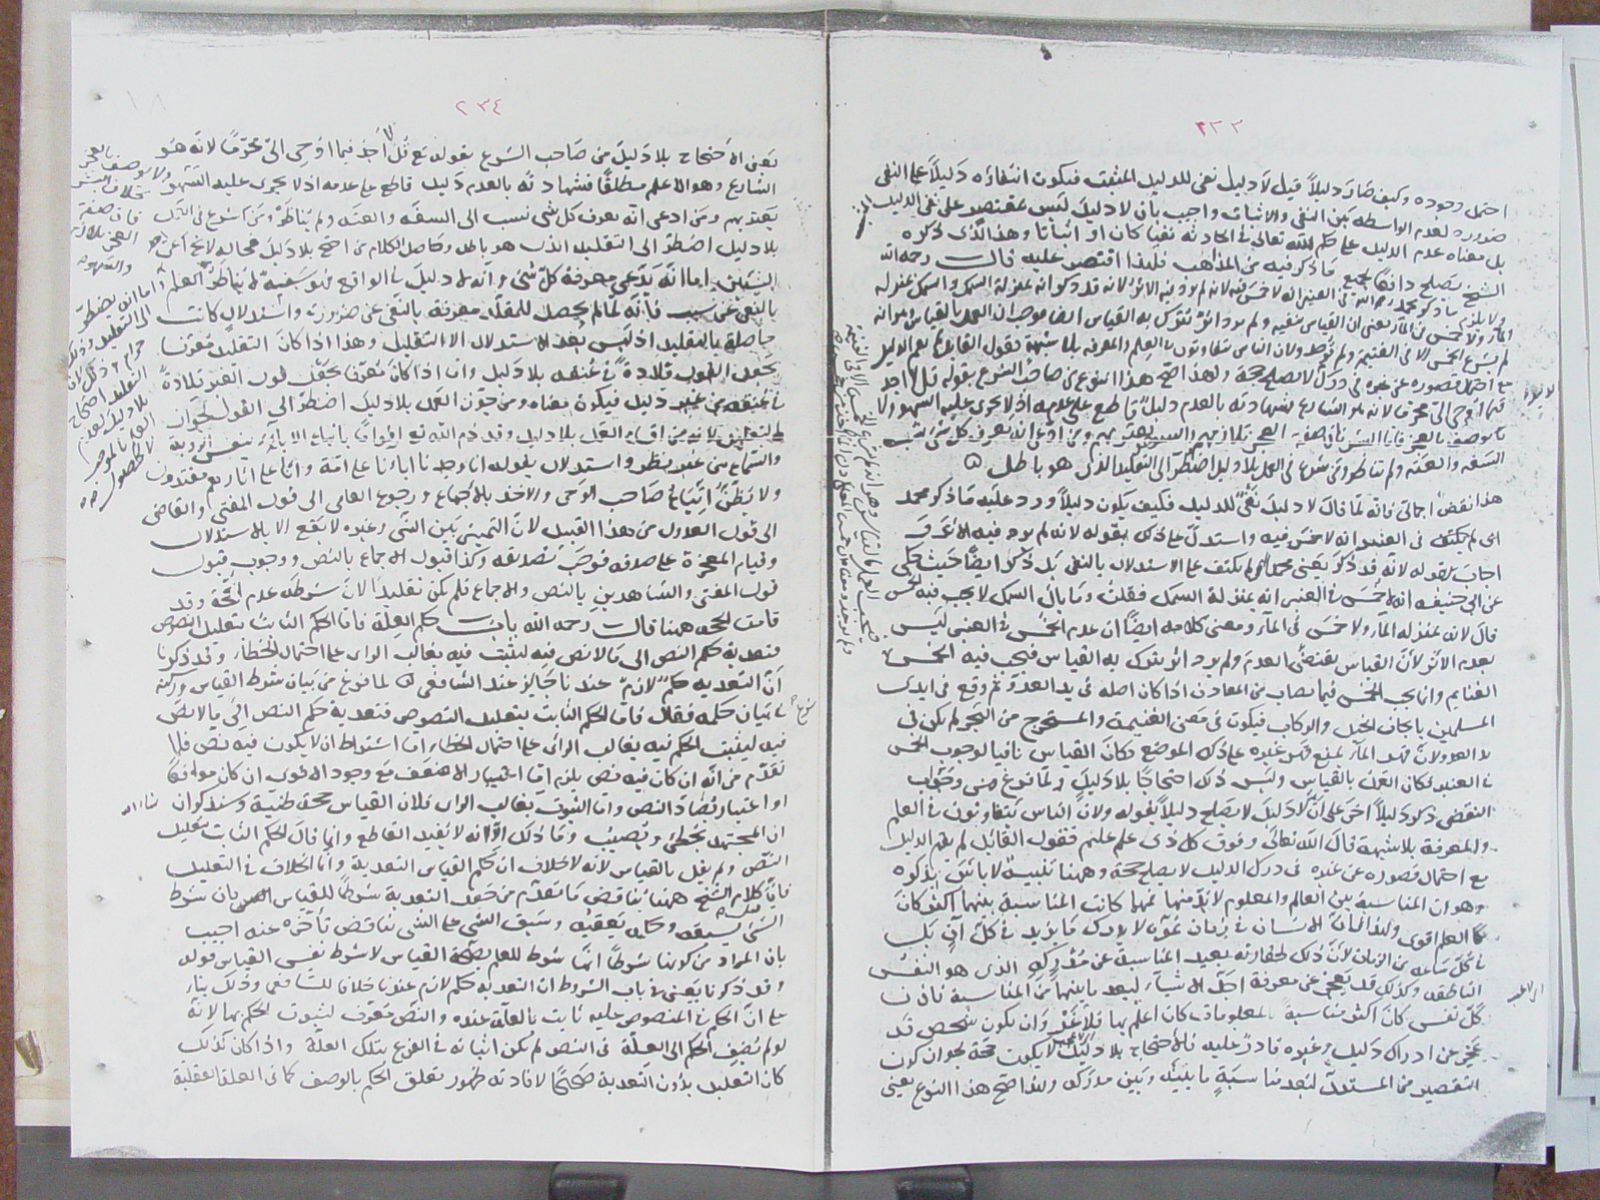 ٢٣٣
احتمل وجوده وكيف صار دليلا قيل لا دليل نفي للدليل المثبت فيكون انتفاؤه دليلا على النفي
ضرورة لعدم الواسطة بين النفي والاثبات واجيب بان لا دليل ليس بمقتصر على نفي الدليل
بل معناه عدم الدليل على حكم الله تعالى في الحادثة نفيا كان او اثباتا وهذا الذي ذكره
الشيخ يصلح دافعا لجميع ما ذكر فيه من المذاهب فلهذا اقتصر عليه قال رحمه الله
ولا يلزم ما ذكر محمد رحمه الله في العنبر انه لا خمس فيه لانه لم يرد فيه الاثر لانه قد ذكر انه بمنزلة السمك والسمك بمنزلة
الماء ولا خمس في الماء يعني ان القياس ينفيه ولم يرد اثر يترك به القياس ايضا فوجب العمل بالقياس وهو انه
لم يشرع الخمس الا في الغنيمة ولم توجد ولان الناس يتفاوتون في العلم والمعرفة بلا شبهة فقول القائل لم يقم الدليل
مع احتمال قصوره عن غيره في درك الدليل لا يصلح حجة ولهذا صح هذا النوع من صاحب الشرع بقوله قل لا اجد
فيما اوحي الي محرما لانه هو الشارع فشهادته بالعدم دليل قاطع على عدمه اذ لا يجري عليه السهو ولا
يوصف بالعجز فاما البشر فان صفة العجز تلازمهم والسهو يعتريهم ومن ادعى انه يعرف كل شيء نسب
السفه والعته ولم يناظر ومن شرع في العمل بلا دليل اضطر الى التقليد الذي هو باطل
هذا نقض اجمالي فانه لما قال لا دليل نفي للدليل فكيف يكون دليلا ورد عليه ما ذكر محمد
في العنبر انه لا خمس فيه واستدل على ذلك بقوله لانه لم يرد فيه الاثر
اجاب بقوله لانه قد ذكر يعني محمدا لم يكتف على الاستدلال بالنفي بل ذكر ايضا حيث حكى
عن ابي حنيفة انه لا خمس في العنبر انه بمنزلة السمك فقلت وما بال السمك لا يجب فيه الخمس
قال لانه بمنزلة الماء ولا خمس في الماء ومعنى كلامه ايضا ان عدم الخمس في العنبر ليس
لعدم الاثر لان القياس يقتضي العدم ولم يرد اثر يترك به القياس فيجب فيه الخمس
الغنايم وانما يجب الخمس فيما يصاب من المعادن اذا كان اصله في يد العدو ثم وقع في ايدي
المسلمين بايجاف الخيل والركاب فيكون في معنى الغنيمة والمستخرج من البحر لم يكن في
يد العدو لان قهر الماء يمنع قهر غيره على ذلك الموضع فكان القياس نافيا لوجوب الخمس
في العنبر فكان العمل بالقياس وليس ذلك احتجاجا بلا دليل ولما فرغ من جواب
النقض ذكر دليلا اخر على ان لا دليل لا يصلح دليلا بقوله ولان الناس يتفاوتون في العلم
والمعرفة بلا شبهة قال الله تعالى وفوق كل ذي علم عليم فقول القائل لم يقم الدليل
مع احتمال قصوره عن غيره في درك الدليل لا يصلح حجة وههنا تنبيه لا باس بذكره
وهو ان المناسبة بين العالم والمعلوم لا بد منها فمهما كانت المناسبة بينهما اكثر كان
العلم اقوى ولهذا كان الانسان في زمان نموه لا يدرك ما يزيد في كل آن بل
في كل ساعة من الزمان لان ذلك لحقارته بعيد المناسبة عن مدركه الذي هو النفس
الناطقة وكذلك قد يعجز عن معرفة اجل الاشياء لبعد ما بينهما من المناسبة فاذن
كل نفس كان اكثر مناسبة بالمعلومات كان اعلم بها فلا غرو ان يكون شخص قد
عجز عن ادراك دليل وغيره قادر عليه فالاحتجاج بلا دليل لا يكون حجة لجواز كون
التقصير من المستدل لبعد مناسبة ما بينه وبين مدركه ولهذا صح هذا النوع يعني
٢٣٤
يعني الاحتجاج بلا دليل من صاحب الشرع بقوله تع قل لا اجد فيما اوحي الي محرما لانه هو
الشارع وهو الاعلم مطلقا فشهادته بالعدم دليل قاطع على عدمه اذ لا يجري عليه السهو
يعتريهم ومن ادعى انه يعرف كل شيء نسب الى السفه والعته ولم يناظر ومن شرع في العمل
بلا دليل اضطر الى التقليد الذي هو باطل وحاصل الكلام من احتج بلا دليل محاله لا يخ عن احد
الشيئين اما انه يدعي معرفة كل شيء وانه لا دليل في الواقع فهو سفيه لا يناظر
فانه لما لم يحصل للمقلد معرفة بالنفي عن ضرورة واستدلال كانت
حاصلة بالتقليد اذ ليس بعد الاستدلال الا التقليد وهذا اذا كان التقليد معرفا
يجعل القول قلادة في عنقه بلا دليل واما اذا كان معرفا بجعل قول الغير قلادة
في عنقه من غير دليل فيكون معناه ومن جوز العمل بلا دليل اضطر الى القول بجواز
التقليد لانه من اقسام العمل بلا دليل وقد ذم الله تع اقواما باتباع الاباء
من غير نظر واستدلال بقوله انا وجدنا اباءنا على امة وانا على اثارهم مقتدون
ولا يظن اتباع صاحب الوحي والاخذ بالاجماع ورجوع العامي الى قول المفتي والقاضي
الى قول العدول من هذا القبيل لان التمييز بين النبي وغيره لا يقع الا بالاستدلال
وقيام المعجزة على صدقه فوجب تصديقه وكذا قبول الاجماع بالنص ووجوب قبول
قول المفتي والشاهدين بالنص والاجماع فلم يكن تقليدا لان شرطه عدم الحجة وقد
قامت الحجة ههنا قال رحمه الله باب حكم العلة فاما الحكم الثابت بتعليل النصوص
فتعدية حكم النص الى ما لا نص فيه ليثبت فيه بغالب الراي على احتمال الخطا وقد ذكرنا
ان التعدية حكم لازم عندنا جائز عند الشافعي لما فرغ من بيان شرط القياس وركنه
في بيان حكمه فقال فاما الحكم الثابت بتعليل النصوص فتعدية حكم النص الى ما لا نص
فيه ليثبت الحكم فيه بغالب الراي على احتمال الخطا اما اشتراط ان لا يكون فيه نص فلما
تقدم من انه ان كان فيه نص يلزم اما اعتبار الاضعف مع وجود الاقوى ان كان موافقا
او اعتبار مضاد النص واما الثبوت بغالب الراي فلان القياس حجة ظنية وسنذكر ان
ان المجتهد يخطئ ويصيب وما ذلك الا انه لا يفيد القاطع وانما قال الحكم الثابت بتعليل
النص ولم يقل بالقياس لانه لا خلاف ان حكم القياس التعدية وانما الخلاف في التعليل
فان كلام الشيخ ههنا يناقض ما تقدم من جعل التعدية شرطا للقياس بان شرط
الشيء يسبقه وحكمه يعقبه وسبق الشيء على الشيء يناقض تأخره عنه اجيب
بان المراد من كونها شرطا انها شرط للعلم بصحة القياس لا شرط نفس القياس قوله
وقد ذكرنا يعني في باب الشروط ان التعدية حكم لازم عندنا خلافا للشافعي وذلك بناء
على ان الحكم في المنصوص عليه ثابت بالعلة عنده والنص معرف لثبوت الحكم بها لانه
لو لم يضف الحكم الى العلة في النص لم يكن اثباته في الفرع بتلك العلة واذا كان كذلك
كان التعليل بدون التعدية صحيحا لافادته ظهور تعلق الحكم بالوصف كما في العلة العقلية